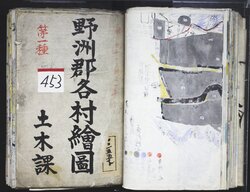 野洲郡各村繪圖
土木課
第一種
453